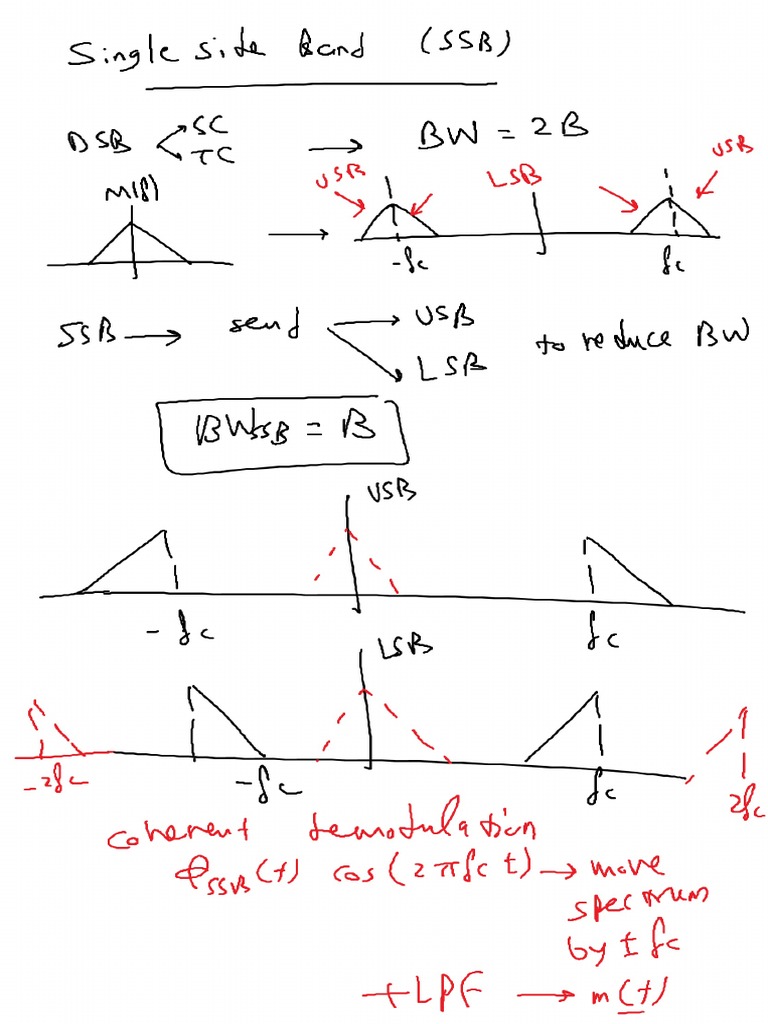 Single side Band (SSB)
DSB SC TC → BW = 2B
M(f) USB LSB USB
-fc fc
SSB → send → USB
LSB
to reduce BW
BWSSB = B
USB
-fc fc
LSB
-2fc -fc fc 2fc
coherent demodulation
φSSB(t) cos(2πfc t) → move
spectrum
by ± fc
+LPF → m(t)